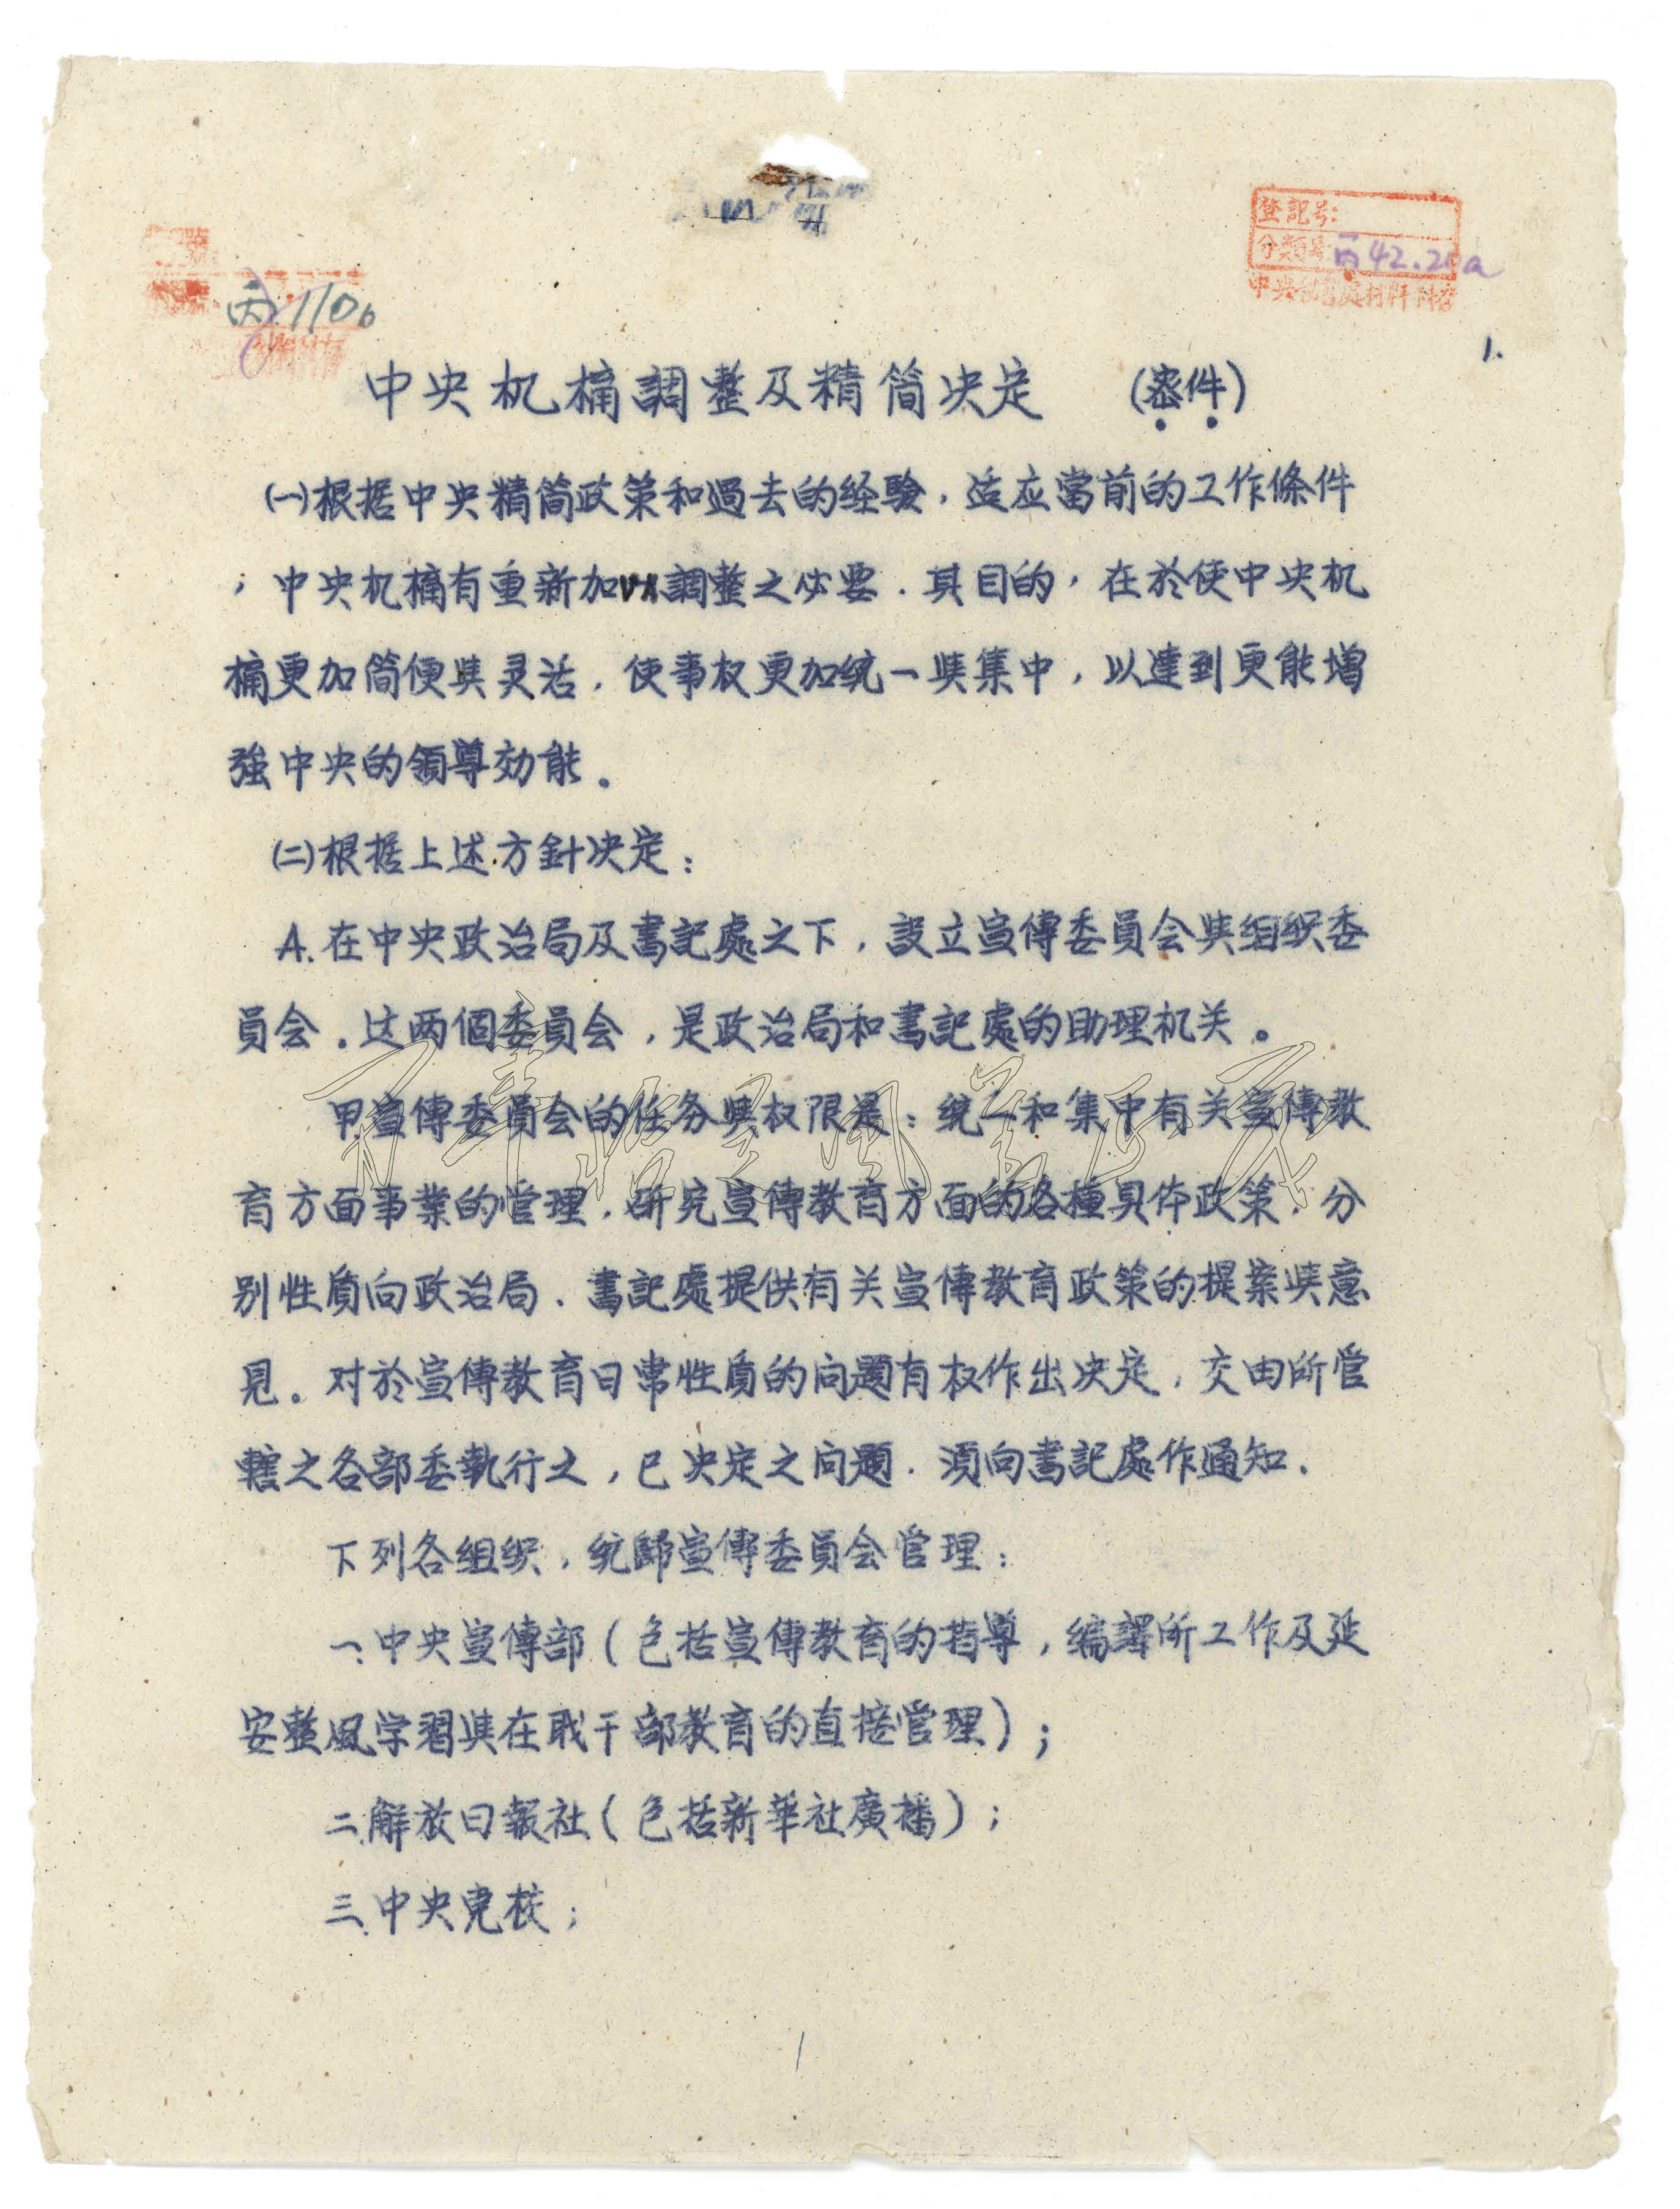 登記号:
分類号 丙42.20a
丙.1100
1.
中央机構調整及精简决定 (密件)
㈠根据中央精简政策和過去的经驗，适应當前的工作條件
，中央机構有重新加以調整之必要．其目的，在於使中央机
構更加简便與灵活．使事权更加统一與集中，以達到更能增
強中央的領導効能。
㈡根据上述方針决定：
A.在中央政治局及書記處之下，設立宣傳委員会與组织委
員会．这两個委員会，是政治局和書記處的助理机关。
甲.宣傳委員会的任务與权限是：统一和集中有关宣傳教
育方面事業的管理．研究宣傳教育方面的各種具体政策．分
别性质向政治局．書記處提供有关宣傳教育政策的提案與意
見。对於宣傳教育日常性质的问題有权作出决定，交由所管
轄之各部委執行之，已决定之问題．须向書記處作通知．
下列各组织．统歸宣傳委員会管理：
一、中央宣傳部(包括宣傳教育的指導，编譯所工作及延
安整風学習與在职干部教育的直接管理)；
二、解放日報社(包括新華社廣播)；
三、中央党校；
1